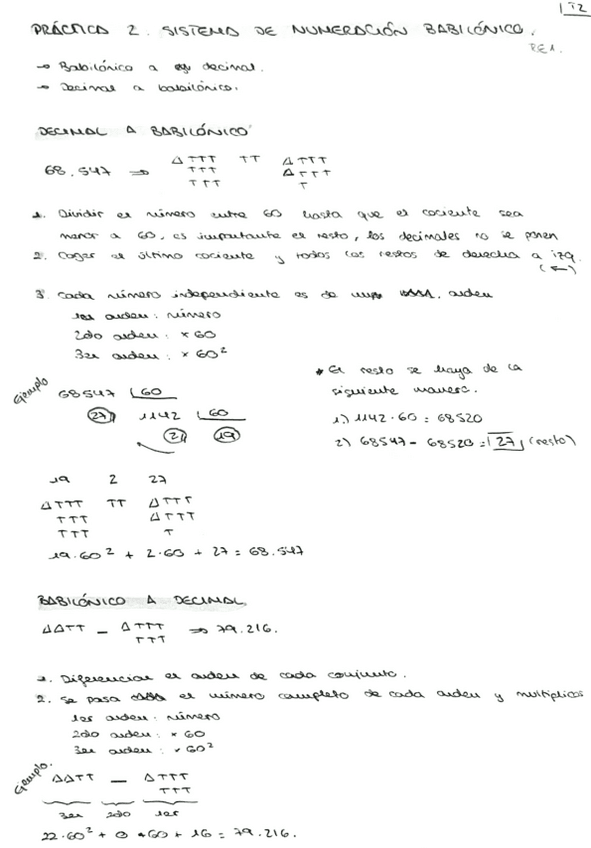 T2
PRÁCTICA 2. SISTEMA DE NUMERACIÓN BABILÓNICO.
→ Babilónico a decimal.
→ Decimal a babilónico.
DECIMAL A BABILÓNICO
68.547 ⇒ ΔTTT TT ΔTTT
TTT ΔTTT
TTT T
1. Dividir el número entre 60 hasta que el cociente sea
menor a 60, es importante el resto, los decimales no se ponen
2. Coger el último cociente y todos los restos de derecha a izq.
(←)
3. Cada número independiente es de un orden
1er orden: número
2do orden: × 60
3er orden: × 60²
Ejemplo
68547 | 60
27 1142 | 60
2 19
* El resto se haya de la
siguiente manera.
1) 1142 · 60 = 68520
2) 68547 - 68520 = 27 (resto)
19 2 27
ΔTTT TT ΔTTT
TTT ΔTTT
TTT T
19·60² + 2·60 + 27 = 68.547
BABILÓNICO A DECIMAL
ΔΔTT — ΔTTT ⇒ 79.216.
TTT
1. Diferenciar el orden de cada conjunto.
2. Se pasa el número completo de cada orden y multiplicas
1er orden: número
2do orden: × 60
3er orden: × 60²
Ejemplo.
ΔΔTT — ΔTTT
TTT
3er 2do 1er
22·60² + 0 · 60 + 16 = 79.216.